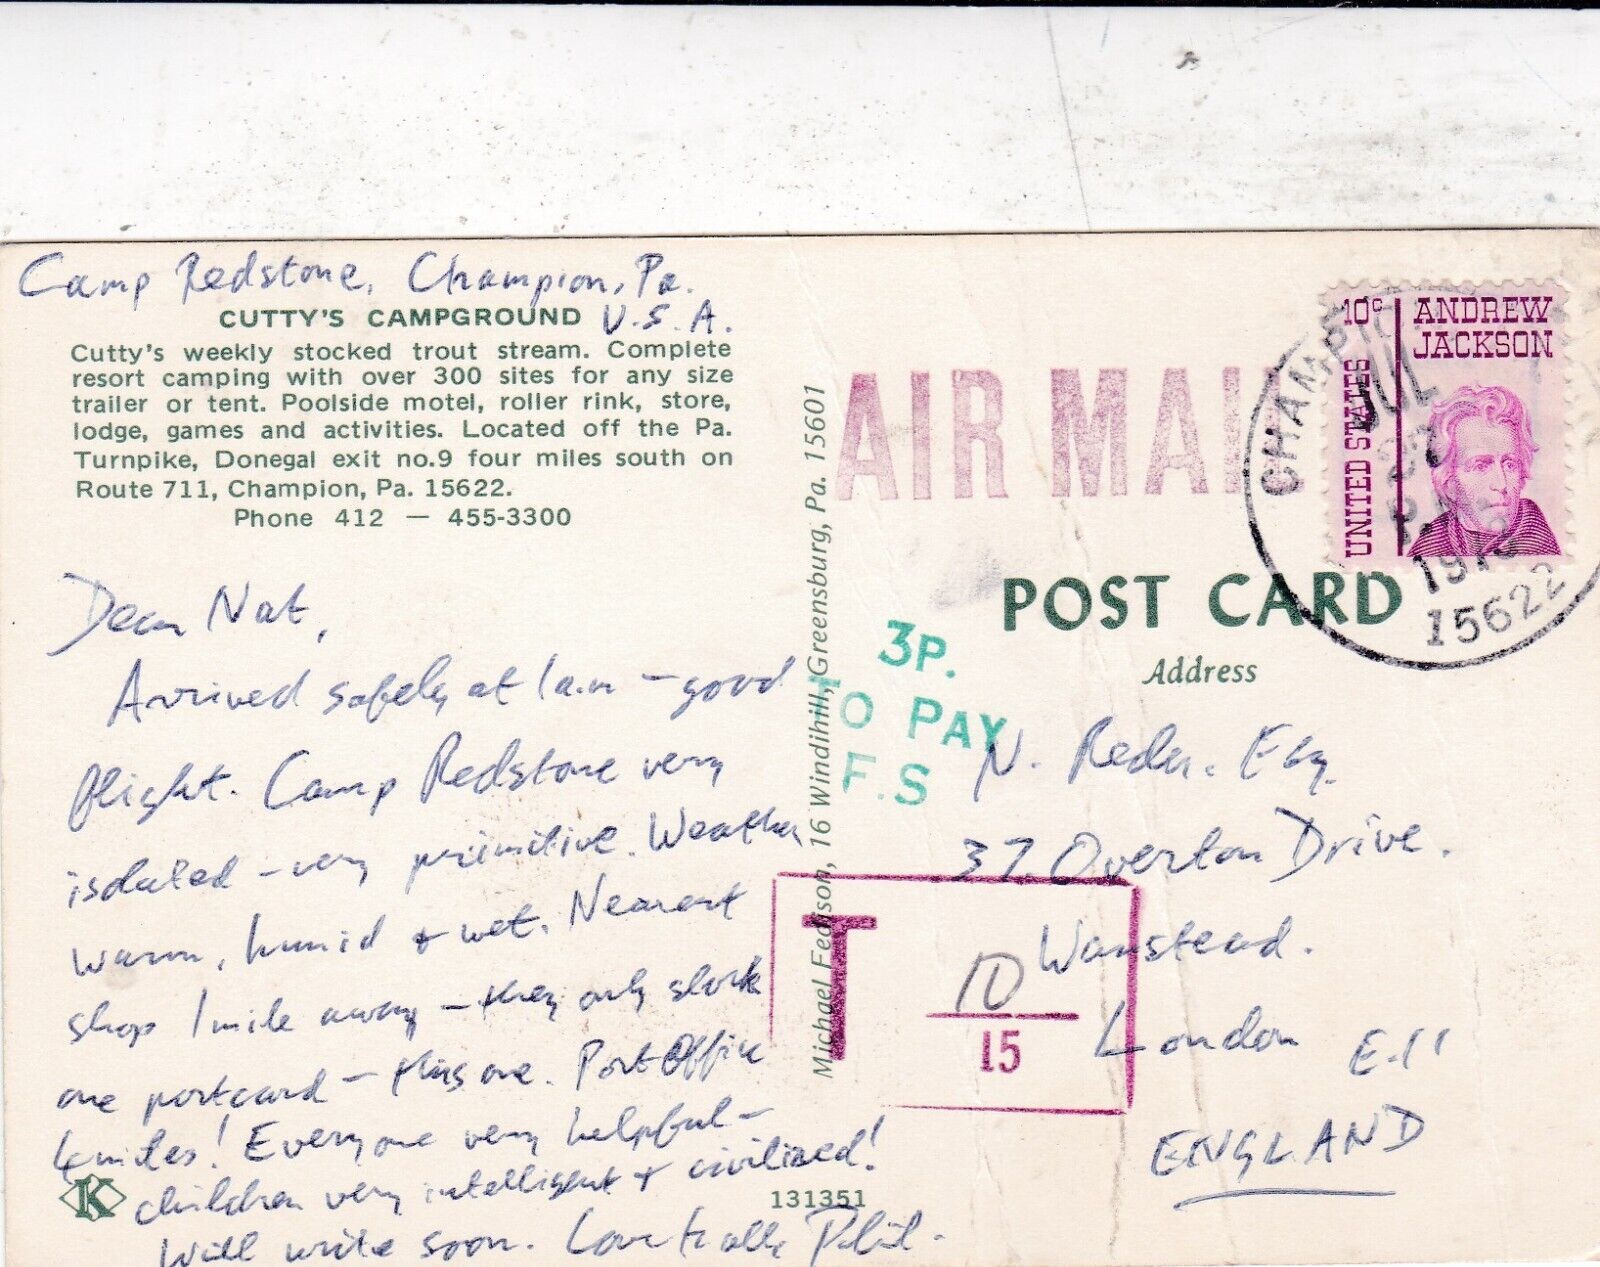 Camp Redstone, Champion, Pa.
U.S.A.
CUTTY'S CAMPGROUND
Cutty's weekly stocked trout stream. Complete
resort camping with over 300 sites for any size
trailer or tent. Poolside motel, roller rink, store,
lodge, games and activities. Located off the Pa.
Turnpike, Donegal exit no.9 four miles south on
Route 711, Champion, Pa. 15622.
Phone 412 — 455-3300
Dear Nat,
Arrived safely at 1 a.m – good
flight. Camp Redstone very
isolated – very primitive. Weather
warm, humid & wet. Nearest
shop 1 mile away – they only stock
one postcard – this one. Post Office
4 miles! Everyone very helpful –
children very intelligent & civilised!
Will write soon. Love to all, Phil.
K
131351
Michael Fedison, 16 Windihill, Greensburg, Pa. 15601
AIR MAIL
10c ANDREW
JACKSON
UNITED STATES
CHAMPION
JUL
27
PM
15622
POST CARD
Address
3P.
TO PAY
F.S
N. Reder. Esq.
37. Overton Drive.
Wanstead.
London E.11
ENGLAND
T
10
15